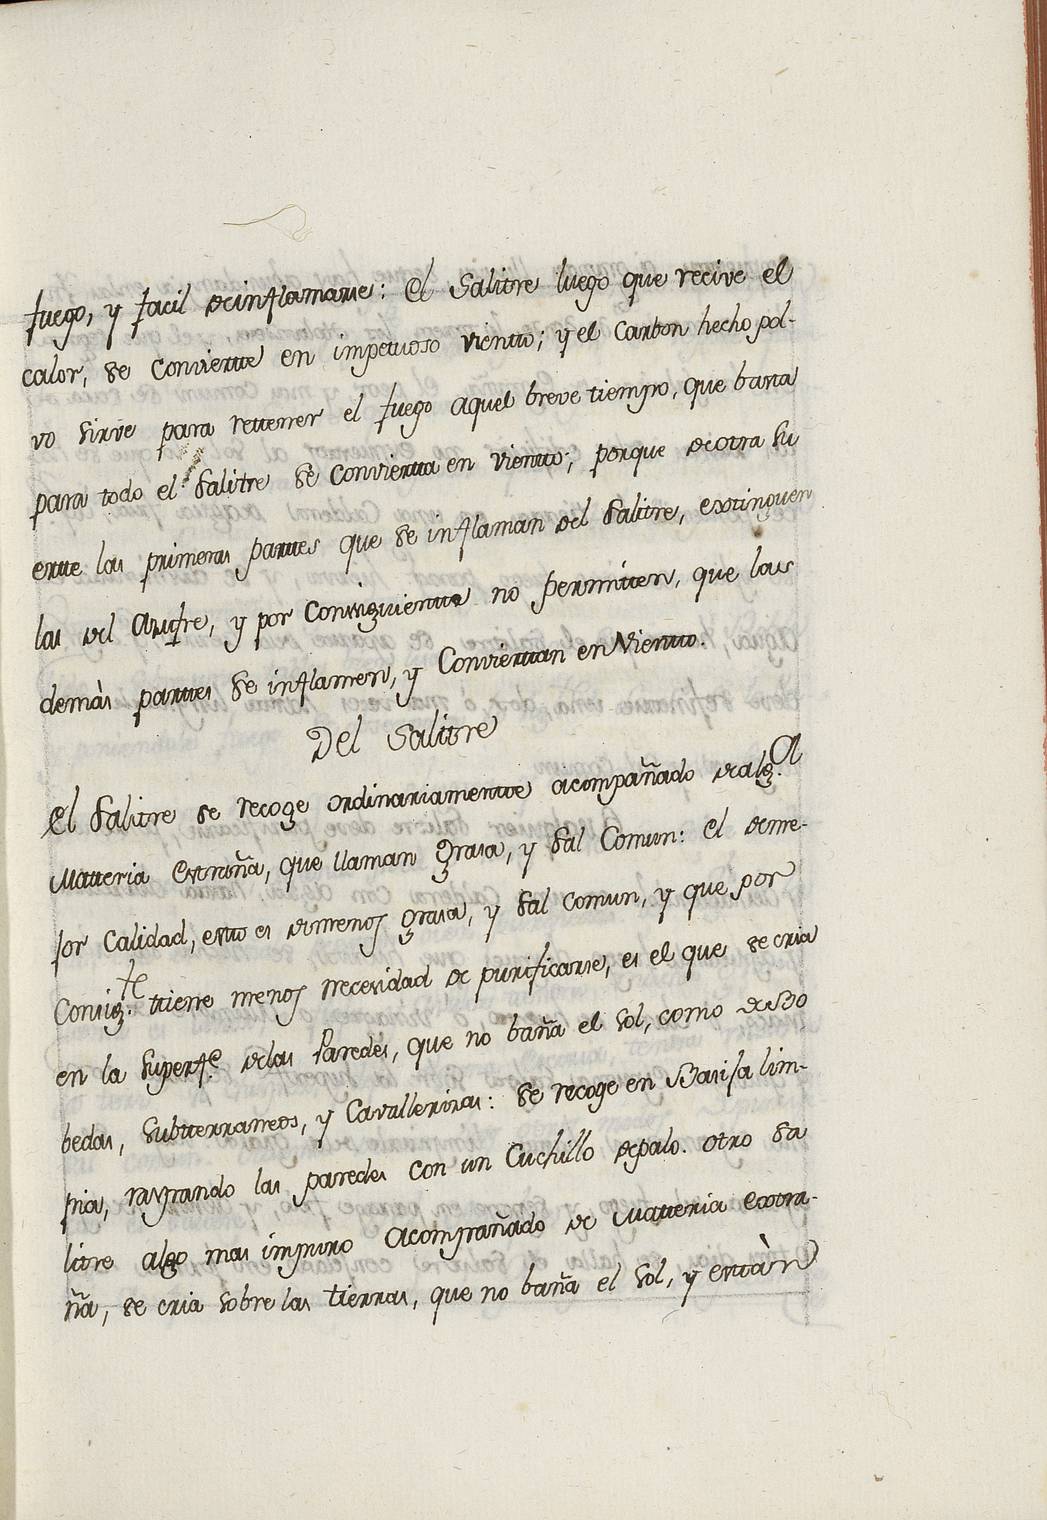 fuego, y facil de inflamarse: El Salitre luego que recive el
calor, se convierte en impetuoso viento; y el Carbon hecho pol-
vo sirve para rettener el fuego aquel breve tiempo, que basta
para todo el Salitre se convierta en viento; porque de otra su
erte las primeras parttes que se inflaman del Salitre, extinguen
las del Azufre, y por Consiguientte no permitten, que las
demàs parttes se inflamen, y Conviertan en Viento.
Del Salitre
El Salitre se recoge ordinariamentte acompañado de alg.a
Matteria extraña, que llaman grasa, y Sal Comun: El de me-
jor Calidad, estto es de menos grasa, y Sal comun, y que por
Consig.te tiene menos necesidad de purificarse, es el que se cria
en la Superf.e de las Paredes, que no baña el Sol, como de Bo
bedas, Subterraneos, y Cavallerizas: Se recoge en Basija lim-
pia, raspando las paredes con un Cuchillo de palo. otro Sa
litre algo mas impuro Acompañado de Matteria extra-
ña, se cria sobre las tierras, que no baña el Sol, y estàn